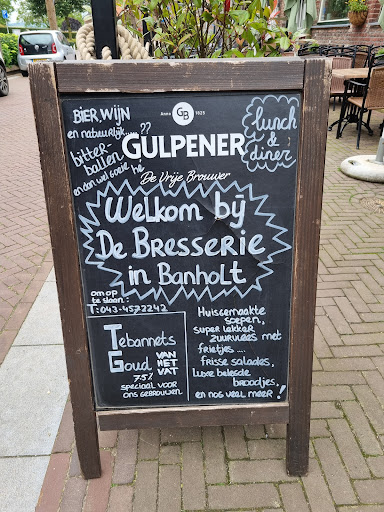 BIER, WIJN
en natuurlijk.....??
bitter-
ballen
Anno GB 1825
GULPENER
De Vrije Brouwer
lunch
&
diner
Welkom bij
De Bresserie
in Banholt
om op
te slaan:
T: 043-4572242
Tebannets
Goud VAN HET VAT
7.5%
SPECIAAL VOOR
ONS GEBROUWEN
Huisgemaakte
soepen,
super lekker
zuurvlees met
frietjes ....
frisse salades,
Luxe belegde
broodjes,
en nog veel meer!